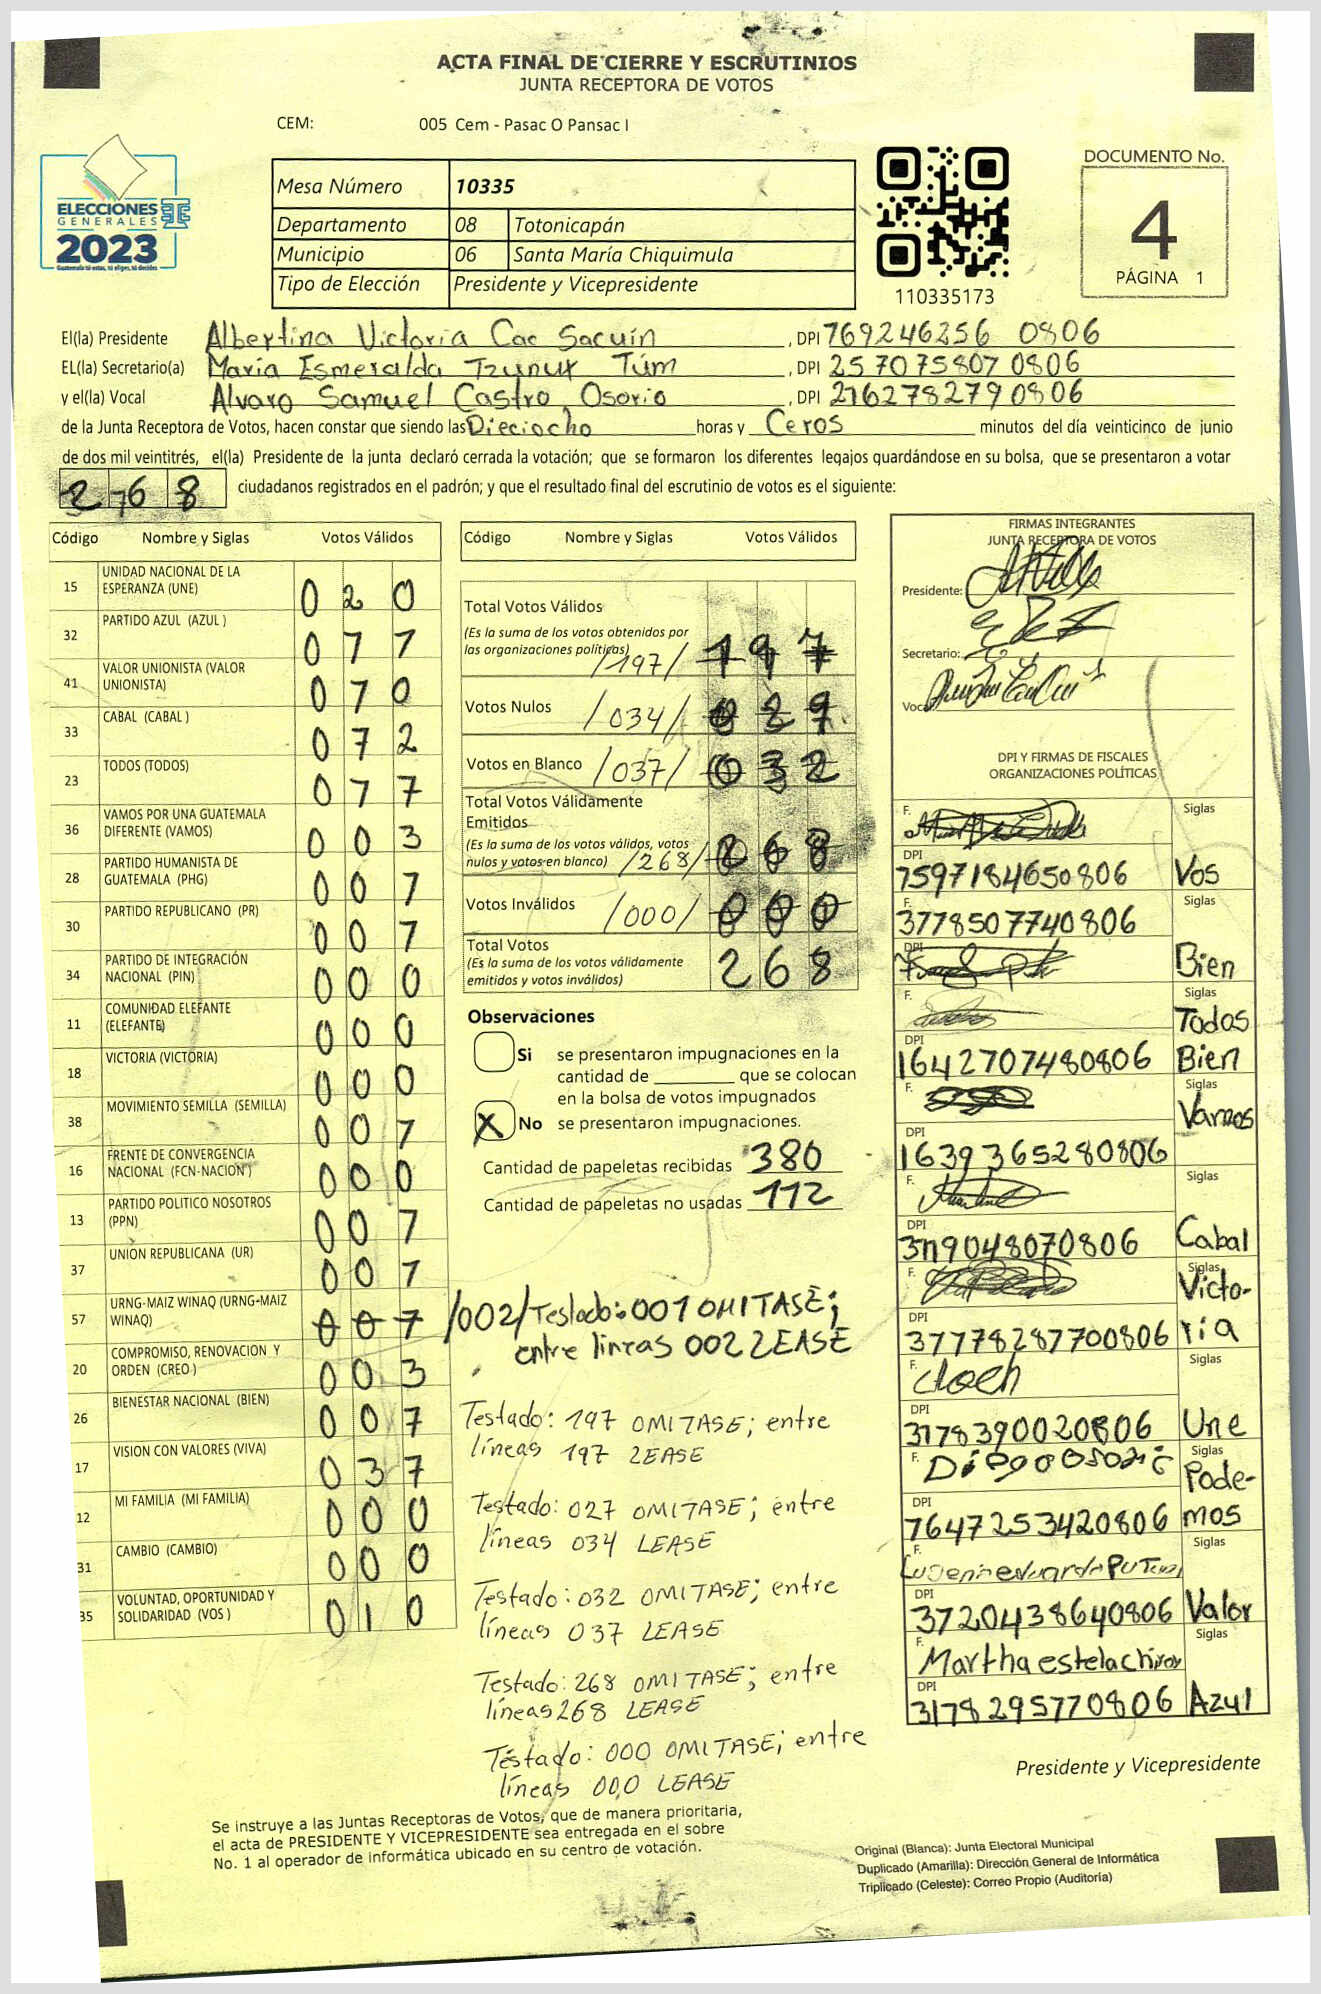 ACTA FINAL DE CIERRE Y ESCRUTINIOS
JUNTA RECEPTORA DE VOTOS
CEM: 005 Cem - Pasac O Pansac I
ELECCIONES
GENERALES
2023
Guatemala tú estas, tú eliges, tú decides
Mesa Número 10335
Departamento 08 Totonicapán
Municipio 06 Santa María Chiquimula
Tipo de Elección Presidente y Vicepresidente
110335173
DOCUMENTO No.
4
PÁGINA 1
El(la) Presidente Albertina Victoria Cac Sacuín, DPI 769246256 0806
EL(la) Secretario(a) María Esmeralda Tzunux Túm, DPI 257075807 0806
y el(la) Vocal Alvaro Samuel Castro Osorio, DPI 216278279 0806
de la Junta Receptora de Votos, hacen constar que siendo las Dieciocho horas y Ceros minutos del día veinticinco de junio
de dos mil veintitrés, el(la) Presidente de la junta declaró cerrada la votación; que se formaron los diferentes legajos guardándose en su bolsa, que se presentaron a votar
268 ciudadanos registrados en el padrón; y que el resultado final del escrutinio de votos es el siguiente:
Código Nombre y Siglas Votos Válidos
15 UNIDAD NACIONAL DE LA
ESPERANZA (UNE) 020
32 PARTIDO AZUL (AZUL )
41 VALOR UNIONISTA (VALOR
UNIONISTA)
33 CABAL (CABAL )
23 TODOS (TODOS)
36 VAMOS POR UNA GUATEMALA
DIFERENTE (VAMOS) 003
28 PARTIDO HUMANISTA DE
GUATEMALA (PHG) 001
30 PARTIDO REPUBLICANO (PR) 001
34 PARTIDO DE INTEGRACIÓN
NACIONAL (PIN) 000
11 COMUNIDAD ELEFANTE
(ELEFANTE) 000
18 VICTORIA (VICTORIA) 000
38 MOVIMIENTO SEMILLA (SEMILLA) 001
16 FRENTE DE CONVERGENCIA
NACIONAL (FCN-NACION ) 000
13 PARTIDO POLITICO NOSOTROS
(PPN) 001
37 UNION REPUBLICANA (UR) 001
57 URNG-MAIZ WINAQ (URNG-MAIZ
WINAQ) 001
20 COMPROMISO, RENOVACION Y
ORDEN (CREO ) 003
26 BIENESTAR NACIONAL (BIEN) 001
17 VISION CON VALORES (VIVA) 037
12 MI FAMILIA (MI FAMILIA) 000
31 CAMBIO (CAMBIO) 000
35 VOLUNTAD, OPORTUNIDAD Y
SOLIDARIDAD (VOS ) 010
Código Nombre y Siglas Votos Válidos
Total Votos Válidos
(Es la suma de los votos obtenidos por
las organizaciones políticas) /197/ 197
Votos Nulos /034/
Votos en Blanco /037/ 032
Total Votos Válidamente
Emitidos
(Es la suma de los votos válidos, votos
nulos y votos en blanco) /268/ 268
Votos Inválidos /000/ 000
Total Votos
(Es la suma de los votos válidamente
emitidos y votos inválidos) 268
Observaciones
Si se presentaron impugnaciones en la
cantidad de ________ que se colocan
en la bolsa de votos impugnados
X No se presentaron impugnaciones.
Cantidad de papeletas recibidas 380
Cantidad de papeletas no usadas 112
/002/ Testado: 001 OMITASE;
entre líneas 002 LEASE
Testado: 197 OMITASE; entre
líneas 197 LEASE
Testado: 027 OMITASE; entre
líneas 034 LEASE
Testado: 032 OMITASE; entre
líneas 037 LEASE
Testado: 268 OMITASE; entre
líneas 268 LEASE
Testado: 000 OMITASE; entre
líneas 000 LEASE
FIRMAS INTEGRANTES
JUNTA RECEPTORA DE VOTOS
Presidente:
Secretario:
Vocal
DPI Y FIRMAS DE FISCALES
ORGANIZACIONES POLÍTICAS
F. Siglas
DPI 1597184650806 Vos
F. 3778507740806 Siglas
DPI Bien
F. Siglas Todos
DPI 1642707480806 Bien
F. Siglas Vamos
DPI 1639365280806
F. Siglas
DPI 3119048070806 Cabal
F. Siglas Victo-
DPI 3777828770 0806 ria
F. Siglas
DPI 3178390020806 Une
F. Siglas Pode-
DPI 7647253420806 mos
F. Siglas
DPI 3720438640806 Valor
F. Martha estela Siglas
DPI 3178295770806 Azul
Presidente y Vicepresidente
Se instruye a las Juntas Receptoras de Votos, que de manera prioritaria,
el acta de PRESIDENTE Y VICEPRESIDENTE sea entregada en el sobre
No. 1 al operador de informática ubicado en su centro de votación.
Original (Blanca): Junta Electoral Municipal
Duplicado (Amarilla): Dirección General de Informática
Triplicado (Celeste): Correo Propio (Auditoría)